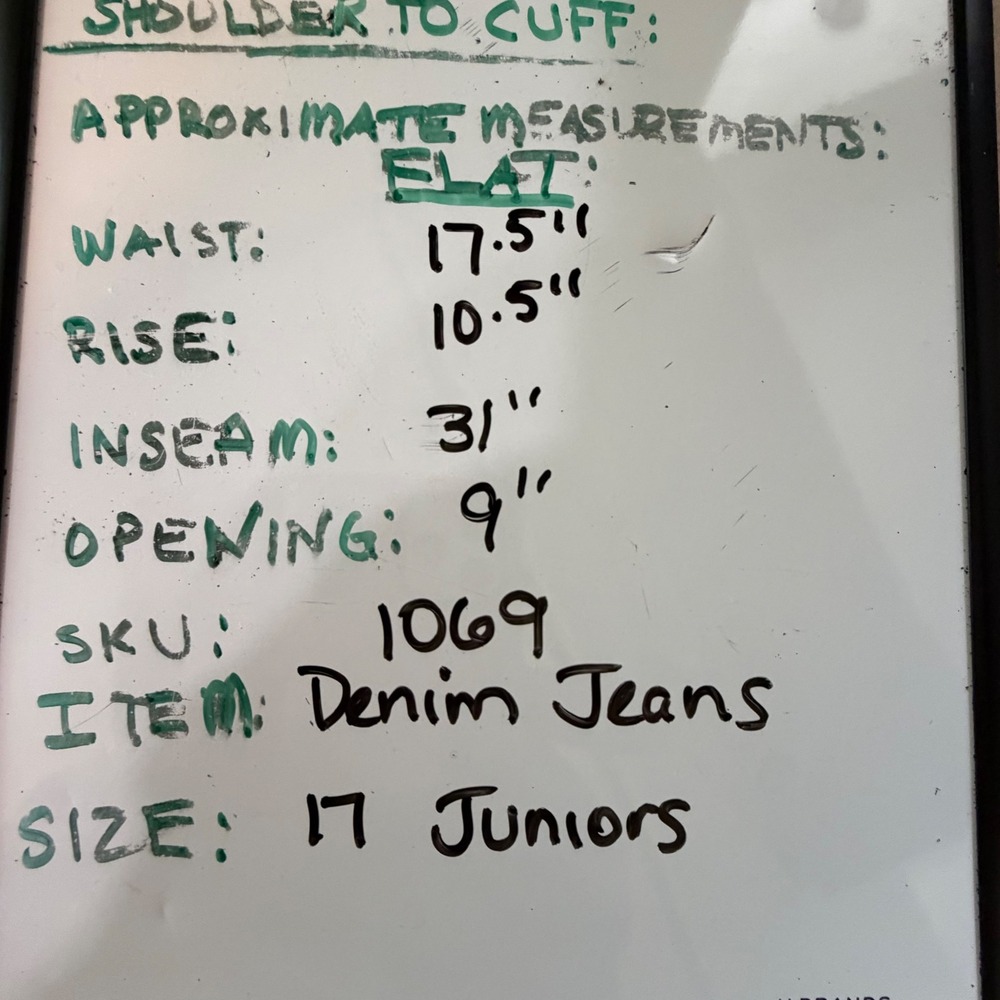 SHOULDER TO CUFF:
APPROXIMATE MEASUREMENTS:
FLAT:
WAIST: 17.5"
RISE: 10.5"
INSEAM: 31"
OPENING: 9"
SKU: 1069
ITEM: Denim Jeans
SIZE: 17 Juniors